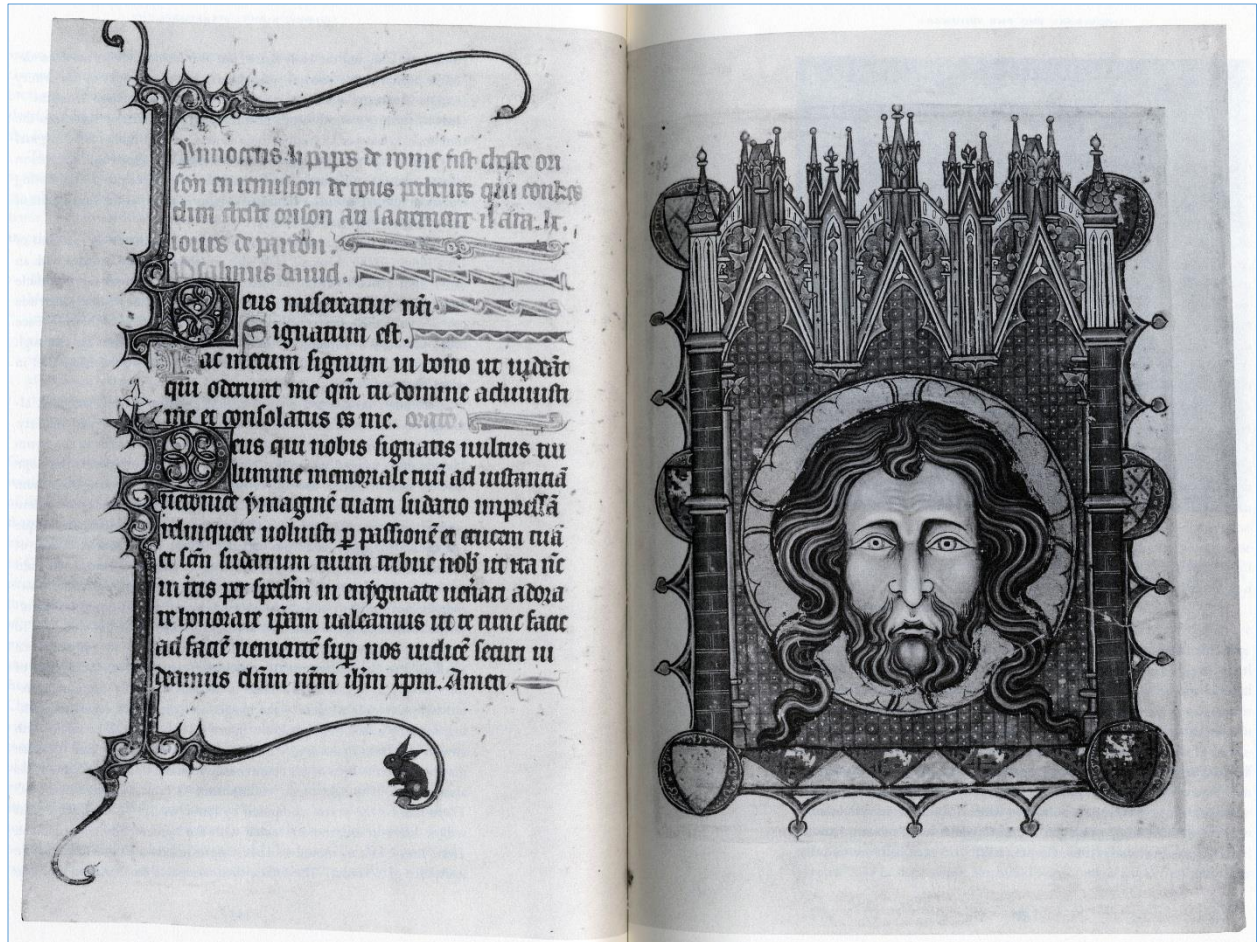 Innocens li papes de rome fist cheste ori
son en remission de tous pecheurs qui
cheste orison au sacrement il ara
iours de pardon.
psalmus dauid.
Deus misereatur nr̄i
Signatum est.
Fac mecum signum in bono ut uideāt
qui oderunt me qm̄ tu domine adiuuisti
me et consolatus es me. oratio.
Deus qui nobis signatis uultus tui
lumine memoriale tuū ad instantiā
ueronice ymaginē tuam sudario impressā
relinquere uoluisti p passionē et crucem tuā
et scm̄ sudarium tuum tribue nob ut ita nc̄
in tr̄is per spe in enygmate uen adora
re honorare ip̄am ualeamus ut te tunc facie
ad faciē uenientē sup nos iudicē securi ui
deamus dn̄m nr̄m ih̄m xpm. Amen.